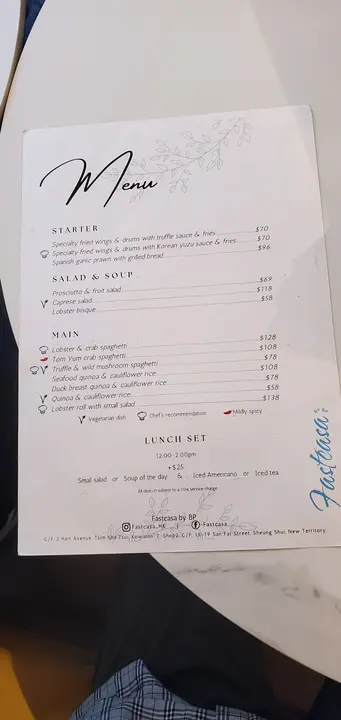 Menu
STARTER
Specialty fried wings & drums with truffle sauce & fries $70
Specialty fried wings & drums with Korean yuzu sauce & fries $70
Spanish garlic prawn with grilled bread $96
SALAD & SOUP
Prosciutto & fruit salad $69
Caprese salad $118
Lobster bisque $58
MAIN
Lobster & crab spaghetti $128
Tom Yum crab spaghetti $108
Truffle & wild mushroom spaghetti $78
Seafood quinoa & cauliflower rice $108
Duck breast quinoa & cauliflower rice $78
Quinoa & cauliflower rice $58
Lobster roll with small salad $138
Vegetarian dish Chef's recommendation Mildly spicy
LUNCH SET
12:00-2:00pm
+$25
Small salad or Soup of the day & Iced Americano or Iced tea
All dine-in subject to a 10% service charge
Fastcasa by BP
Fastcasa.HK | Fastcasa
G/F, 2 Hart Avenue, Tsim Sha Tsui, Kowloon | Shop2, G/F, 15-19 San Fat Street, Sheung Shui, New Territory
Fastcasa